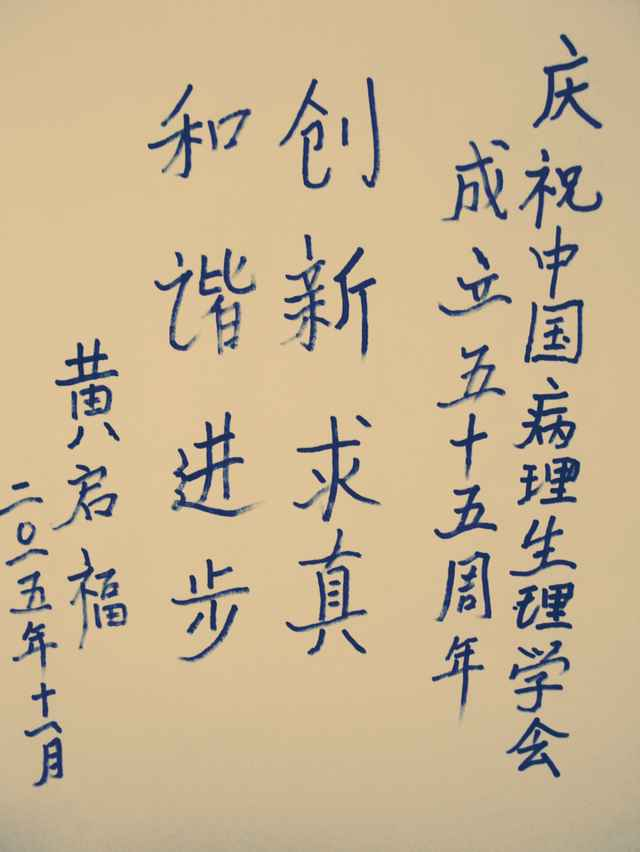 庆祝中国病理生理学会
成立五十五周年
创新求真
和谐进步
黄启福
二〇一五年十一月